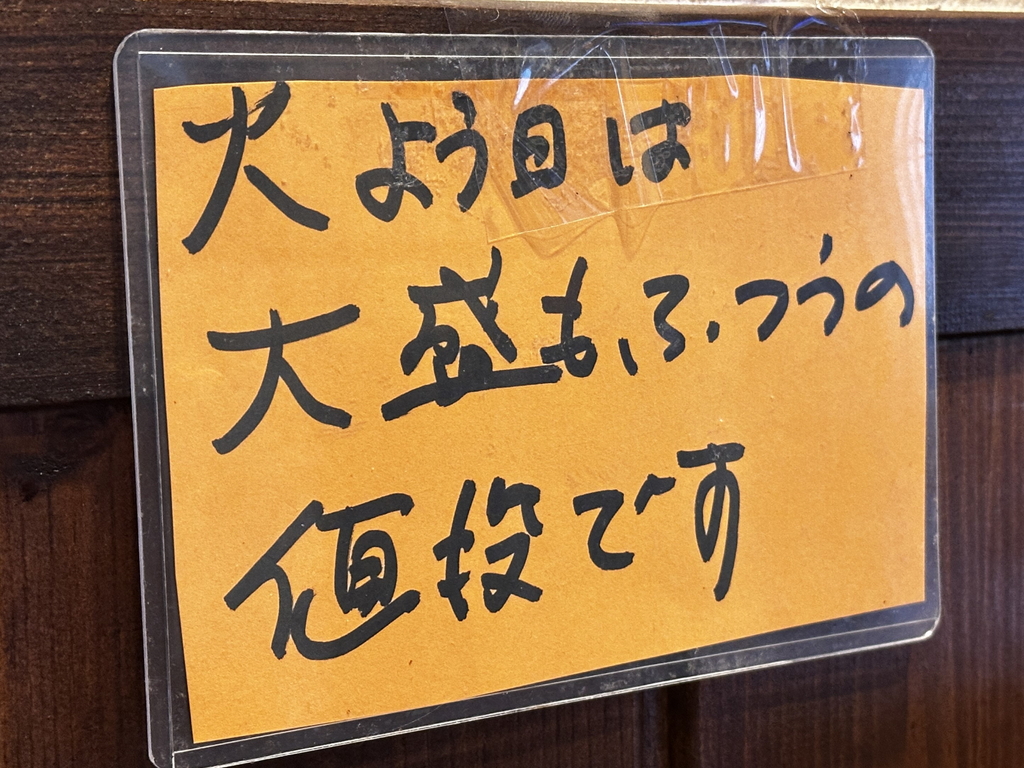 火よう日は
大盛もふつうの
値段です